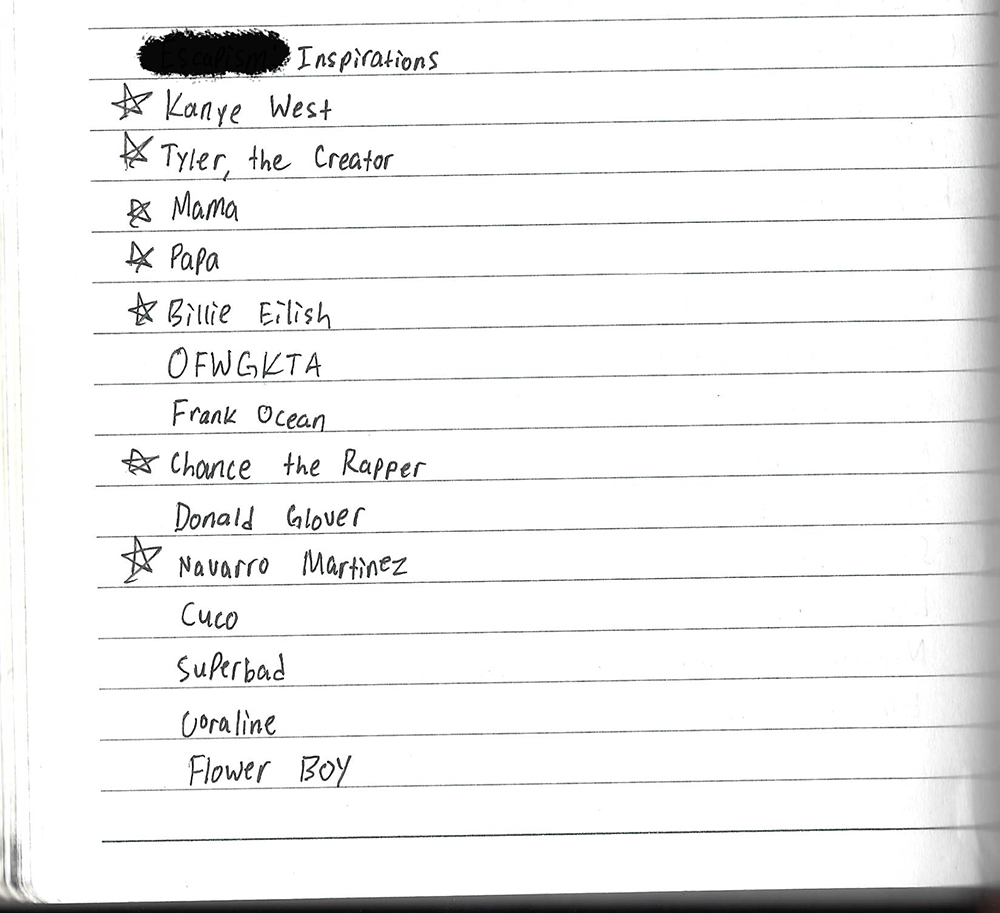 Inspirations
☆ Kanye West
☆ Tyler, the Creator
☆ Mama
☆ Papa
☆ Billie Eilish
OFWGKTA
Frank Ocean
☆ Chance the Rapper
Donald Glover
☆ Navarro Martinez
Cuco
Superbad
Coraline
Flower BOY